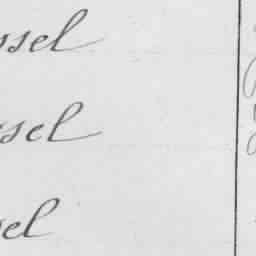 ssel
ssel
sel